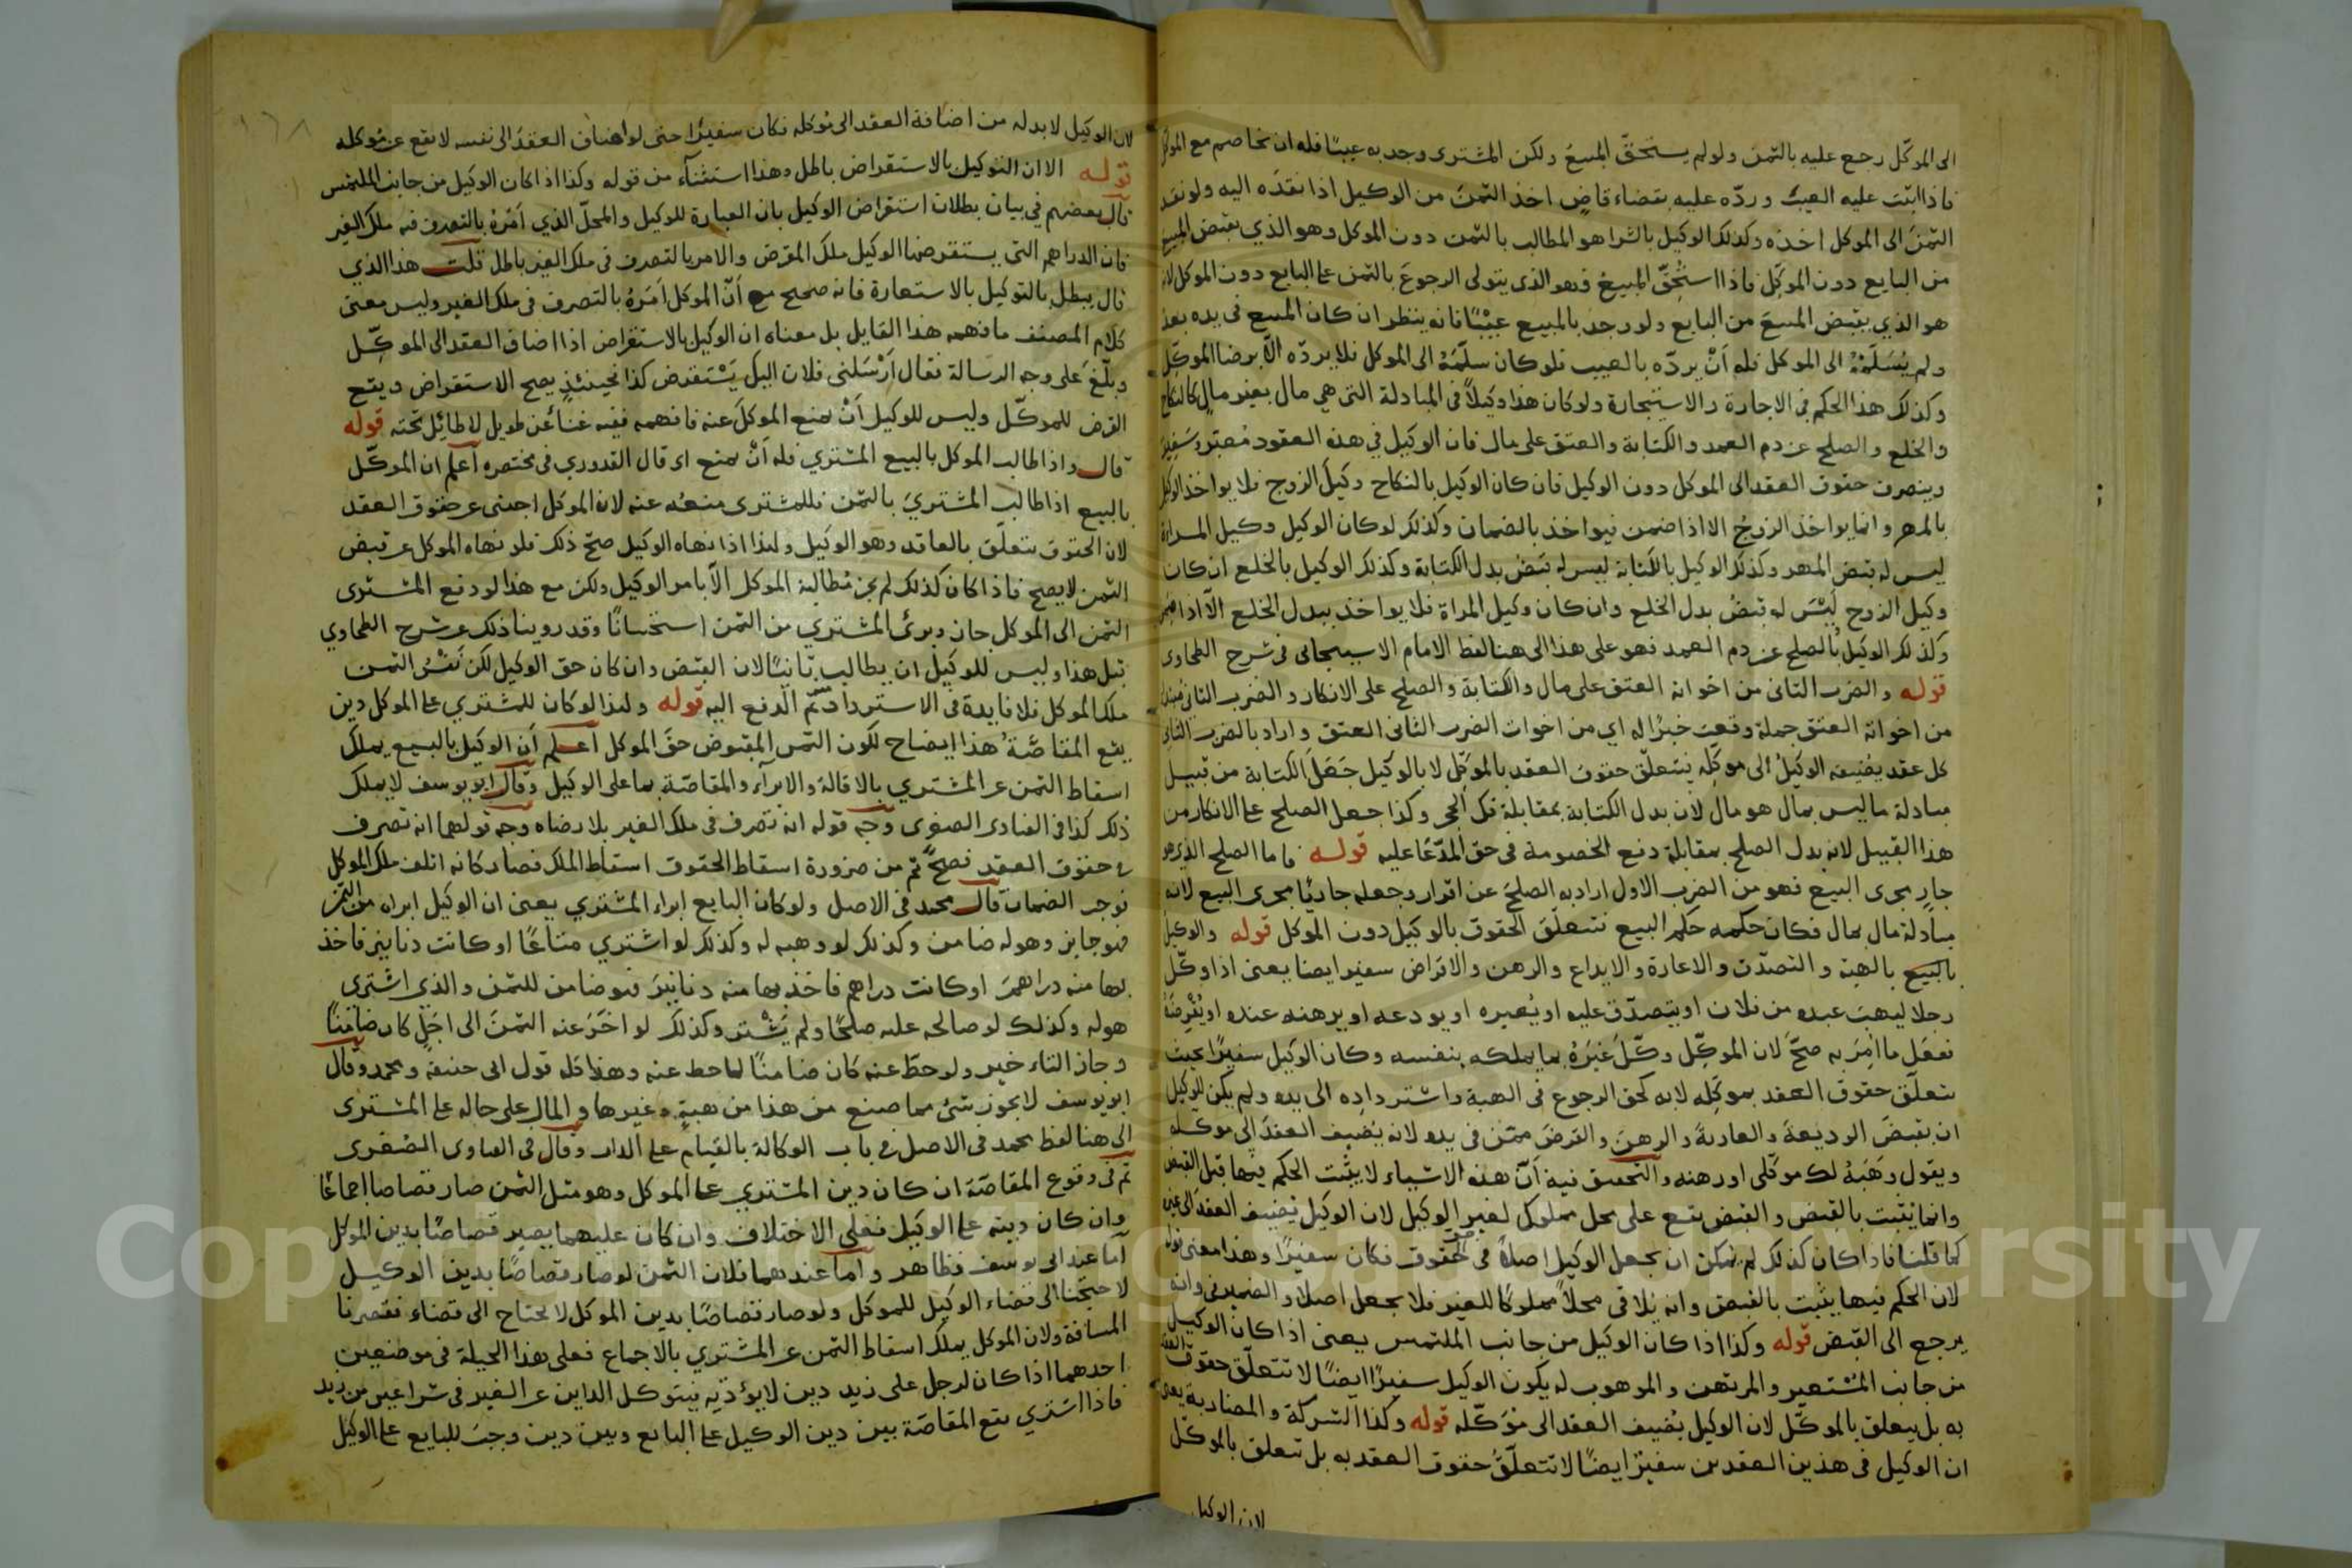 الى الموكّل رجع عليه بالثمن ولو لم يستحقّ المبيعُ ولكن المشترى وجد به عيبًا فله ان يخاصم مع الموكل
فاذا اثبت عليه العيبُ وردّه عليه بقضاء قاضٍ اخذ الثمنَ من الوكيل اذا نقدَه اليه ولو نقد
الثمنَ الى الموكل اخذه وكذلك الوكيل بالشرا هو المطالب بالثمن دون الموكل وهو الذي يقبض المبيع
من البايع دون الموكّل فاذا استُحِقّ المبيعُ فهو الذى يتولى الرجوعَ بالثمن على البايع دون الموكل لانه
هو الذي يقبض المبيعَ من البايع ولو وجد بالمبيع عيْبًا فانه ينظر ان كان المبيع فى يده بعد
ولم يُسَلّمْهُ الى الموكل فله اَنْ يردّه بالعيب فلو كان سلّمَهُ الى الموكل فلا يردّه الّا برضا الموكّل
وكذلك هذا الحكم فى الاجارة والاستيجارة ولو كان هذا وكيلاً فى المبادلة التى هى مال بغير مالٍ كالنكاح
والخلع والصلح عن دم العمد والكتابة والعتق على مال فان الوكيل في هذه العقود مُعبّر وسَفير
وينصرف حقوق العقد الى الموكل دون الوكيل فان كان الوكيل بالنكاح وكيلَ الزوج فلا يواخذ الوكيل
بالمهر وانما يواخذ الزوجُ الا اذا ضمن فيواخذ بالضمان وكذلك لو كان الوكيل وكيل المراة
ليس له قبض المهر وكذلك الوكيل بالكتابة ليس له قبضُ بدل الكتابة وكذلك الوكيل بالخلع ان كان
وكيل الزوج لَيْسَ له قبضُ بدل الخلع وان كان وكيل المراة فلا يواخذ ببدل الخلع الّا اذا ضمن
وكذلك الوكيل بالصلح عن دم العمد فهو على هذا الى هنا لفظ الامام الاسبيجابى فى شرح الطحاوى
قوله والضرب الثانى من اخواته العتق على مال والكتابة والصلح على الانكار والضرب الثانى مبتدا
من اخواته العتق جملة وقعت خبرًا له اي من اخوات الضرب الثانى العتق واراد بالضرب الثانى
كل عقد يضيفه الوكيلُ الى موكّله يتعلّق حقوق العقد بالموكّل لا بالوكيل جَعَلَ الكتابة من قبيل
مبادلة ما ليس بمال هو مال لان بدل الكتابة بمقابلة فك الحجر وكذا جعل الصلح على الانكار من
هذا القبيل لانه بدل الصلح بمقابلة دفع الخصومة فى حق المدّعا عليه قوله فاما الصلح الذى هو
جارٍ مجرى البيع فهو من الضرب الاول اراد به الصلحَ عن اقرار وجعله جاريًا مجرى البيع لانه
مبادلة مال بمال فكان حكمه حكم البيع فتتعلّق الحقوق بالوكيل دون الموكل قوله والوكيل
بالبيع بالهبة والتصدّق والاعارة والايداع والرهن والاقراض سفير ايضا يعنى اذا وكّل
رجلا ليهبَ عبده من فلان او يتصدّق عليه او يُعيره او يودعه او يرهنه عنده او يُقْرِضَهُ
ففعَل ما اُمِرَ به صحّ لان الموكّل وكّلَ غيرَهُ بما يملكه بنفسه وكان الوكيل سفيرًا بحيث
تتعلّق حقوق العقد بموكّله لا به كحق الرجوع فى الهبة واسترداده الى يده ولم يكن للوكيل
ان يقبضَ الوديعةَ والعاريةَ والرهنَ والقرضَ ممّن فى يده لانه يُضيف العقدَ الى موكله
ويقول وَهَبَهُ لك موكّلى او رهنه والتحقيق فيه اَنّ هذه الاشياء لا يثبت الحكم فيها قبل القبض
وانما يثبت بالقبض والقبض يقع على محل مملوك لغير الوكيل لان الوكيل يُضيف العقدَ الى غيره
كما قلنا فاذا كان كذلك لم يُمكن ان يجعل الوكيل اصلاً فى الحقوق فكان سفيرًا وهذا معنى قوله
لان الحكم فيها يثبت بالقبض وانه يُلاقى محلاً مملوكا للغير فلا يجعل اصلا والضمير فى وانه
يرجع الى القبض قوله وكذا اذا كان الوكيل من جانب الملتمس يعنى اذا كان الوكيل
من جانب المُسْتعير والمرتهن والموهوب له يكون الوكيل سفيرًا ايضًا لا تتعلّق حقوق العقد
به بل يتعلق بالموكّل لان الوكيل يُضيف العقد الى موكّله قوله وكذا الشركة والمضاربة يعنى
ان الوكيل فى هذين العقدين سفيرٌ ايضًا لا تتعلّقُ حقوق العقد به بل تتعلق بالموكّل
لان الوكيل
لان الوكيل لا بد له من اضافة العقد الى موكله فكان سفيرًا حتى لو اضاف العقدَ الى نفسه لا يقع عن موكله
قوله الا ان التوكيل بالاستقراض باطل وهذا استثناء من قوله وكذا اذا كان الوكيل من جانب الملتمس
قال بعضهم في بيان بطلان استقراض الوكيل بان العبارة للوكيل والمحلّ الذي اَمَرَهُ بالتصرف فيه ملك الغير
فان الدراهم التى يستقرضها الوكيل ملك المقرض والامر بالتصرف فى ملك الغير باطل قلت هذا الذي
قال يبطل بالتوكيل بالاستعارة فانه صحيح مع اَنّ الموكل اَمَرَهُ بالتصرف فى ملك الغير وليس معنى
كلام المصنف ما فهمه هذا القايل بل معناه ان الوكيل بالاستقراض اذا اضاف العقد الى الموكّل
وبلّغ على وجه الرسالة فقال اَرْسَلنى فلان اليك يَسْتقرض كذا فحينئذٍ يصح الاستقراض ويقع
القرض للموكّل وليس للوكيل اَنْ يمنع الموكلَ عنه فافهمه ففيه غناءٌ عن طويل لا طائِل تحته قوله
قال واذا طالب الموكل بالبيع المشتري فله اَنْ يمنع اى قال القدوري فى مختصره اعلم ان الموكّل
بالبيع اذا طالب المشتريَ بالثمن فللمشترى منعُه عنه لان الموكل اجنبى عن حقوق العقد
لان الحقوق تتعلّق بالعاقد وهو الوكيل ولهذا اذا نهاه الوكيل صحّ ذلك فلو نهاه الموكل عن قبض
الثمن لا يصح فاذا كان كذلك لم يجز مُطالبة الموكل الّا بامر الوكيل ولكن مع هذا لو دفع المشترى
الثمن الى الموكل جاز وبرئ المشتري من الثمن استحسانًا وقد روينا ذلك عن شرح الطحاوي
قبل هذا وليس للوكيل ان يطالب ثانيًا لان القبض وان كان حق الوكيل لكن نَفْسُ الثمن
ملك الموكل فلا فايدة فى الاسترداد ثمّ الدفع اليه قوله ولهذا لو كان للمشتري على الموكل دين
يقع المقاصّةُ هذا ايضاح لكون الثمن المقبوض حقّ الموكل اعلم اَن الوكيل بالبيع يملك
اسقاط الثمن عن المشتري بالاقالة والابراء والمقاصّة بما على الوكيل وقال ابو يوسف لا يملك
ذلك كذا فى الفتاوى الصغرى وجه قوله انه تصرف فى ملك الغير بلا رضاه وجه قولهما انه تصرف
فى حقوق العقد فصحّ ثم من ضرورة اسقاط الحقوق اسقاط الملك فصار كانه اتلف ملك الموكل
فوجب الضمان قال محمد فى الاصل ولو كان البايع ابراء المشتري يعنى ان الوكيل ابراه من الثمن
فهو جايز وهو له ضامن وكذلك لو وهبه له وكذلك لو اشتري متاعًا او كانت دنانير فاخذ
بها منه دراهمَ او كانت دراهم فاخذ بها منه دنانيرَ فهو ضامن للثمن والذي اشترى
هو له وكذلك لو صالحه عليه صلحًا ولم يَشْتر وكذلك لو اخّرَ عنه الثمنَ الى اجلٍ كان ضامنًا
وجاز التاء خير ولو حطّ عنه كان ضامنًا لما حط عنه وهذا كله قول ابى حنيفة ومحمد وقال
ابو يوسف لا يجوز شئ مما صنع من هذا من هبةٍ وغيرها والمال على حاله على المشترى
الى هنا لفظ محمد فى الاصل فى باب الوكالة بالقيام على الدار وقال فى الفتاوى الصُغرى
ثم فى وقوع المقاصّة ان كان دين المشتري على الموكل وهو مثل الثمن صار قصاصا اجماعًا
وان كان دينه على الوكيل فعلى الاختلاف وان كان عليهما يصير قصاصًا بدين الموكل
اما عند ابى يوسف فظاهر واما عندهما فلان الثمن لو صار قصاصًا بدين الوكيل
لاحتجنا الى قضاء الوكيل للموكل ولو صار قصاصًا بدين الموكل لا يحتاج الى قضاء فقصرنا
المسافة ولان الموكل يملك اسقاط الثمن عن المشتري بالاجماع فعلى هذا الحيلة فى موضعين
احدهما اذا كان لرجل على زيد دين لا يؤدّيه يتوكل الداين عن الغير فى شرا عين من زيد
فاذا اشترى يقع المقاصّة بين دين الوكيل على البايع وبين دين وجبَ للبايع على الوكيل